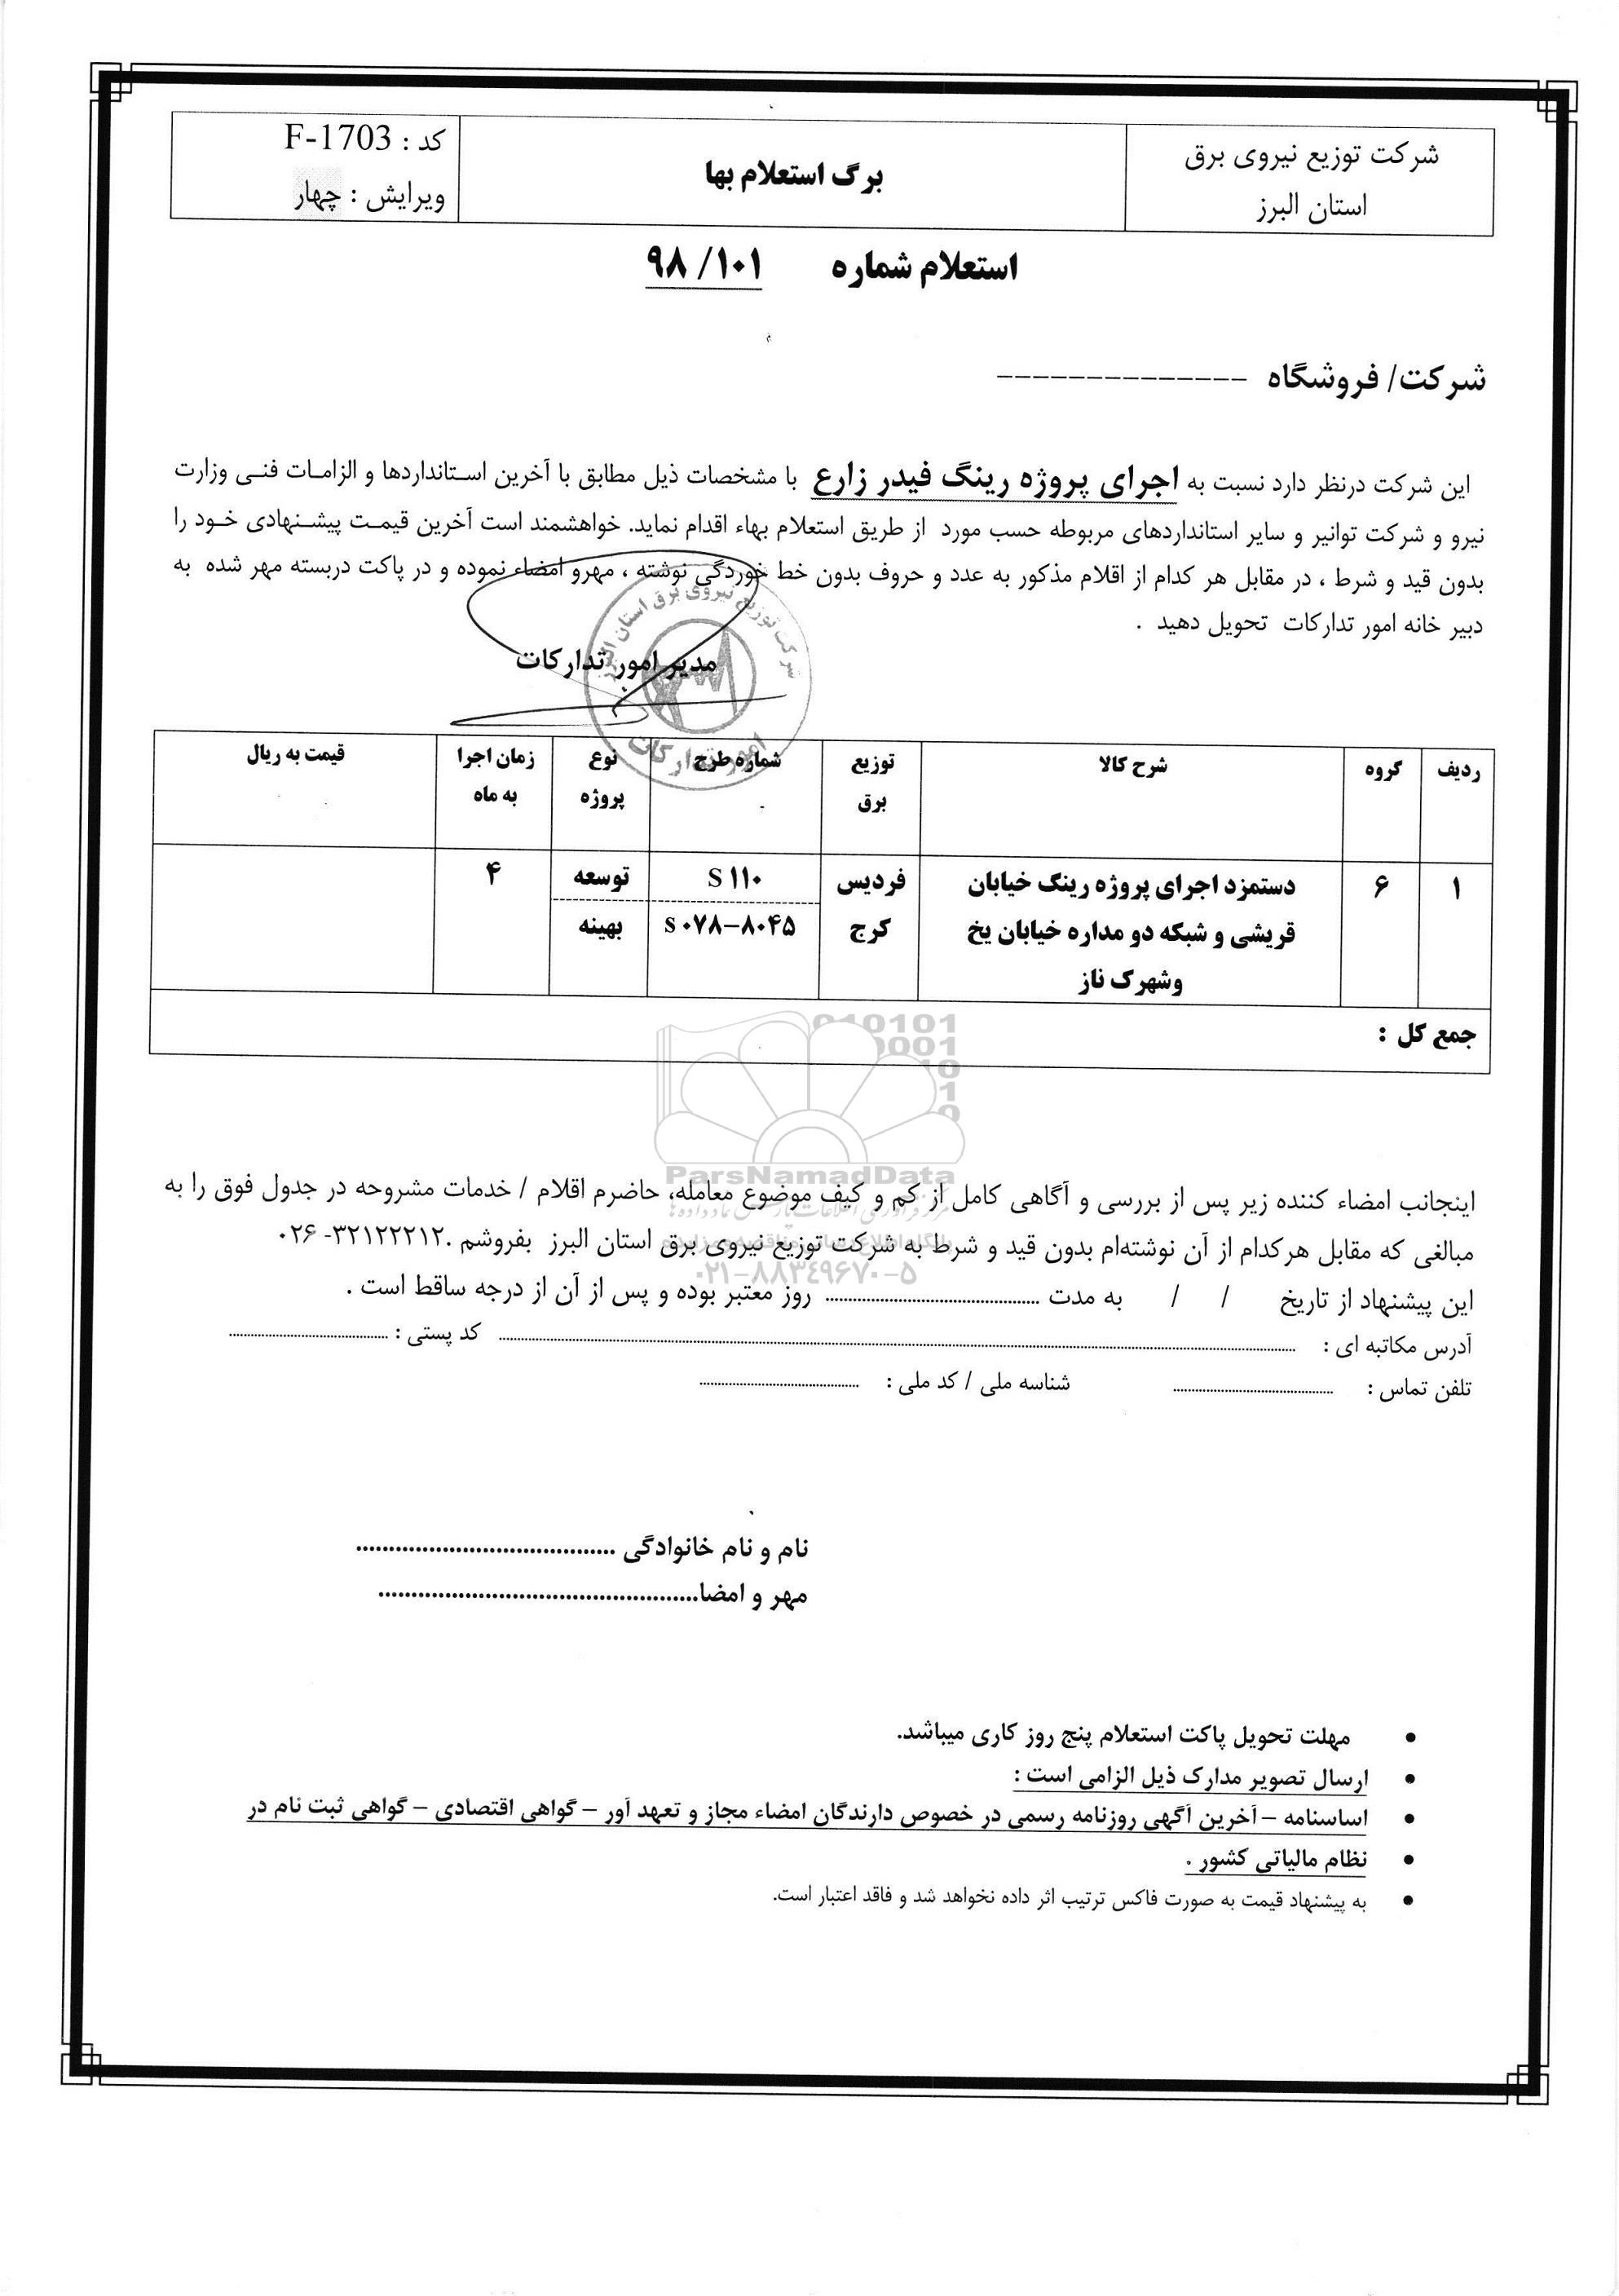 شرکت توزیع نیروی برق
استان البرز
برگ استعلام بها
کد : F-1703
ویرایش : چهار
استعلام شماره ۹۸/۱۰۱
شرکت/ فروشگاه --------------
این شرکت درنظر دارد نسبت به اجرای پروژه رینگ فیدر زارع با مشخصات ذیل مطابق با آخرین استانداردها و الزامات فنی وزارت
نیرو و شرکت توانیر و سایر استانداردهای مربوطه حسب مورد از طریق استعلام بهاء اقدام نماید. خواهشمند است آخرین قیمت پیشنهادی خود را
بدون قید و شرط ، در مقابل هر کدام از اقلام مذکور به عدد و حروف بدون خط خوردگی نوشته ، مهرو امضاء نموده و در پاکت دربسته مهر شده به
دبیر خانه امور تدارکات تحویل دهید .
مدیر امور تدارکات
شرکت توزیع نیروی برق استان البرز
امور تدارکات
ردیف گروه شرح کالا توزیع برق شماره طرح نوع پروژه زمان اجرا به ماه قیمت به ریال
۱ ۶ دستمزد اجرای پروژه رینگ خیابان فردیس S ۱۱۰ توسعه ۴
قریشی و شبکه دو مداره خیابان یخ کرج S ۰۷۸-۸۰۴۵ بهینه
وشهرک ناز
جمع کل :
ParsNamadData
اینجانب امضاء کننده زیر پس از بررسی و آگاهی کامل از کم و کیف موضوع معامله، حاضرم اقلام / خدمات مشروحه در جدول فوق را به
مبالغی که مقابل هرکدام از آن نوشته‌ام بدون قید و شرط به شرکت توزیع نیروی برق استان البرز بفروشم .۳۲۱۲۲۲۱۲-۰۲۶
۰۲۱-۸۸۳۴۹۶۷۰-۵
این پیشنهاد از تاریخ / / به مدت .................... روز معتبر بوده و پس از آن از درجه ساقط است .
آدرس مکاتبه ای : .................... کد پستی : ....................
تلفن تماس : .................... شناسه ملی / کد ملی : ....................
نام و نام خانوادگی ....................
مهر و امضا....................
• مهلت تحویل پاکت استعلام پنج روز کاری میباشد.
• ارسال تصویر مدارک ذیل الزامی است :
• اساسنامه – آخرین آگهی روزنامه رسمی در خصوص دارندگان امضاء مجاز و تعهد آور – گواهی اقتصادی – گواهی ثبت نام در
• نظام مالیاتی کشور .
• به پیشنهاد قیمت به صورت فاکس ترتیب اثر داده نخواهد شد و فاقد اعتبار است.